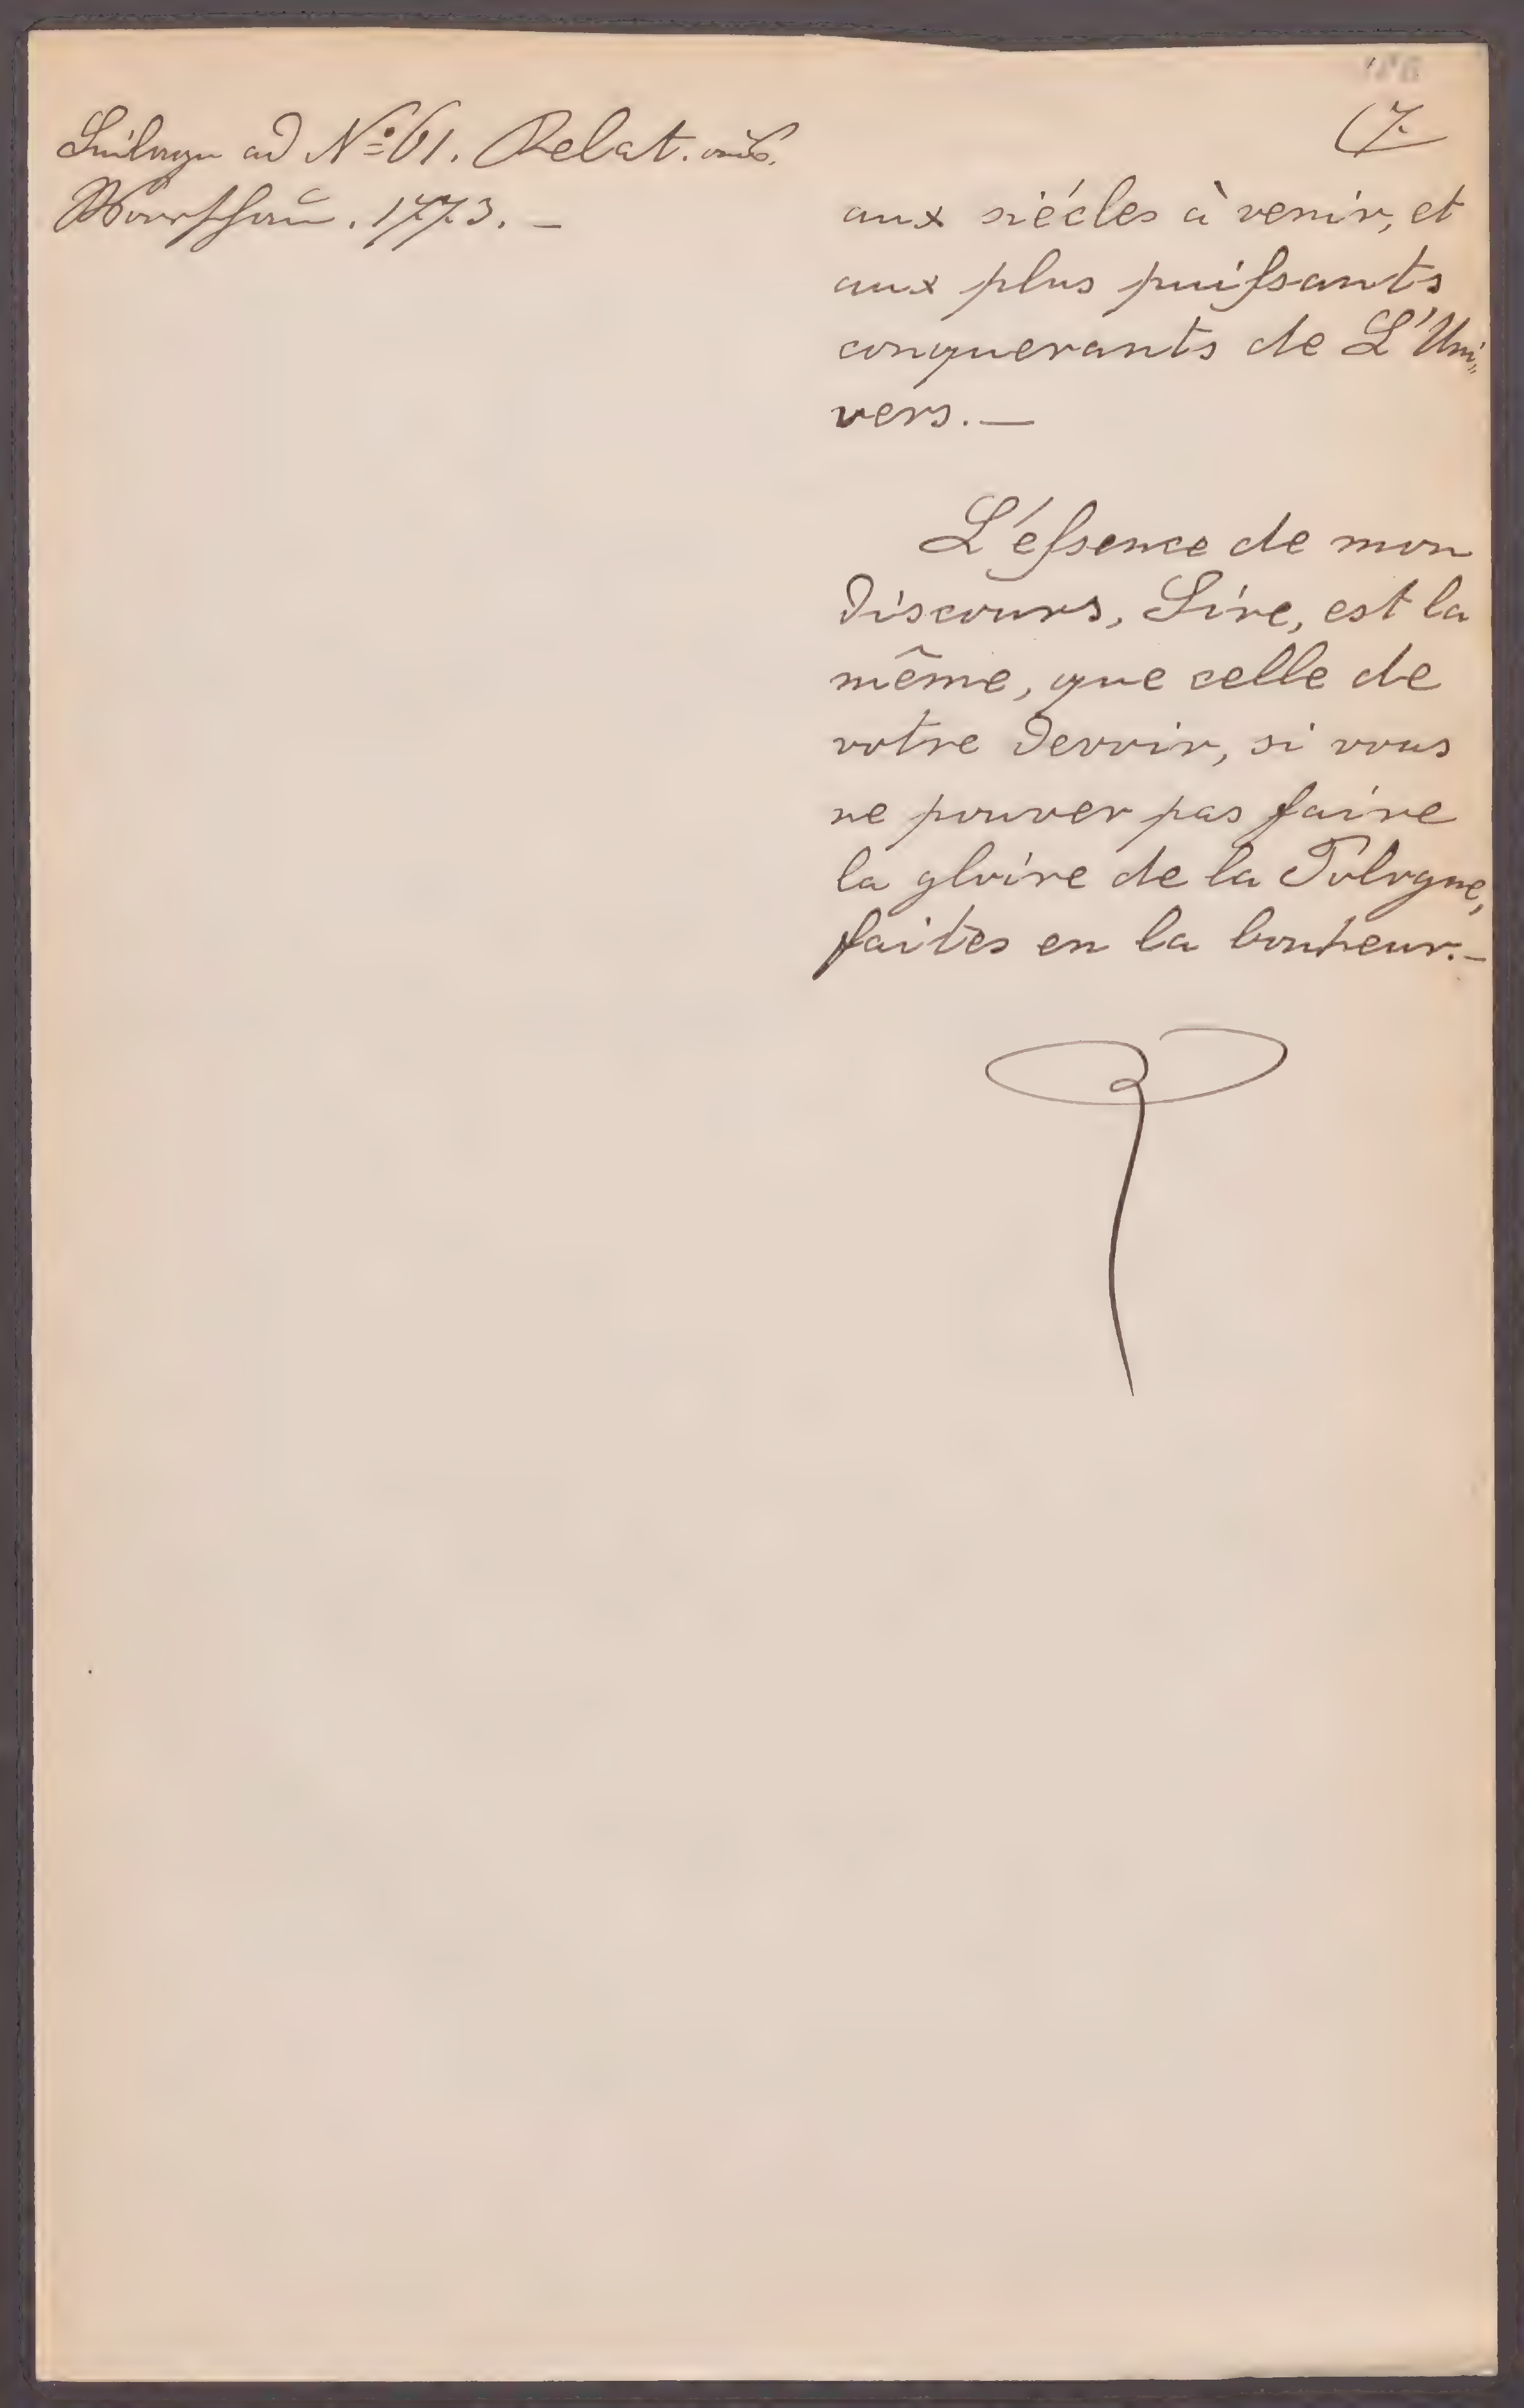 Beilage ad No 61. Relat. aus
Warschau. 1773. —
(7.
aux siécles à venir, et
aux plus puiſsants
conquerants de L'Uni„
vers. —
L'éſsence de mon
Discours, Sire, est la
même, que celle de
votre Devoir, si vous
ne pouver pas faire
la gloire de la Pologne,
faites en la bonheur. —